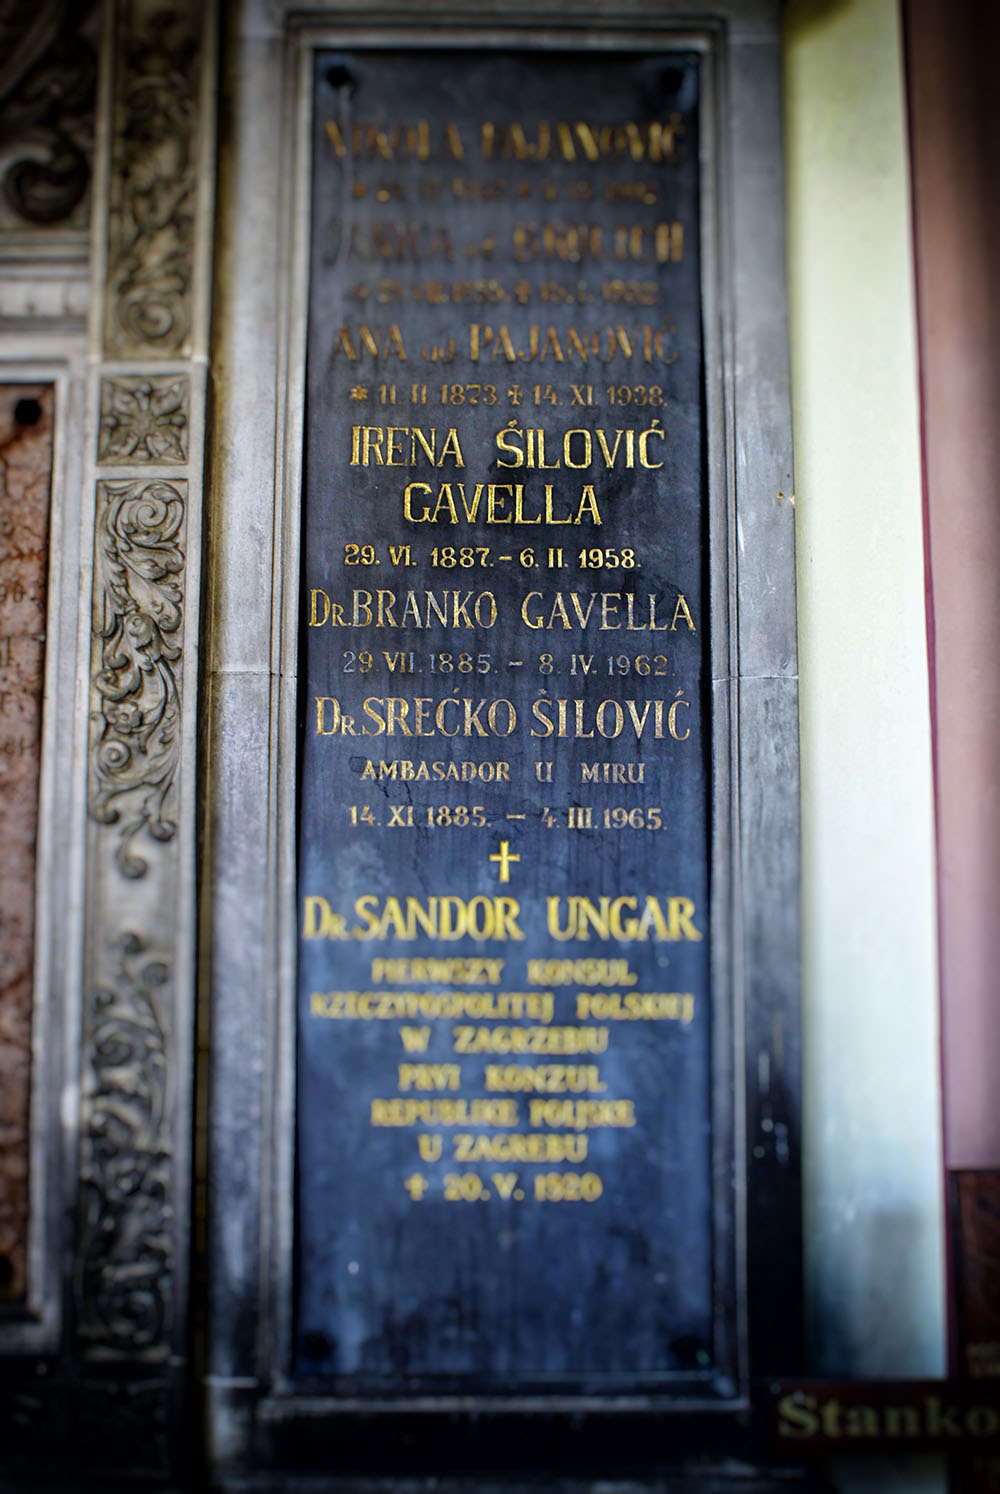 NIKOLA PAJANOVIĆ
ANA ud. PAJANOVIĆ
* 11. II 1873. ✝ 14. XI. 1938.
IRENA ŠILOVIĆ
GAVELLA
29. VI. 1887. - 6. II. 1958.
DR. BRANKO GAVELLA
29. VII. 1885. - 8. IV. 1962.
DR. SREĆKO ŠILOVIĆ
AMBASADOR U MIRU
14. XI 1885. - 4. III. 1965.
✝
DR. SANDOR UNGAR
PIERWSZY KONSUL
RZECZYPOSPOLITEJ POLSKIEJ
W ZAGRZEBIU
PRVI KONZUL
REPUBLIKE POLJSKE
U ZAGREBU
✝ 20. V. 1920
Stanko